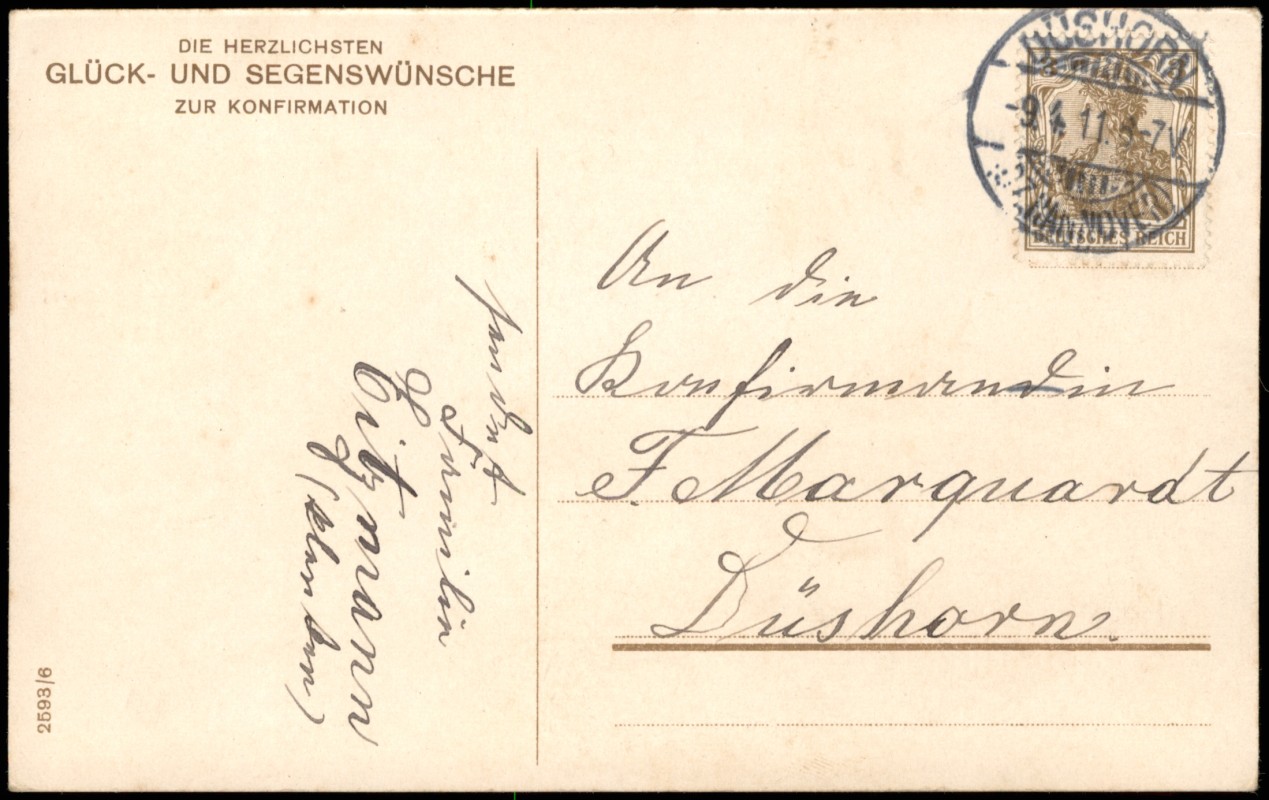 DIE HERZLICHSTEN
GLÜCK- UND SEGENSWÜNSCHE
ZUR KONFIRMATION
sendet
Familie
Eitzmann
2593/6
DÜSHORN
-9.4.11. 6-7V
(HANNOVER)
DEUTSCHES REICH
An die
Konfirmandin
F. Marquardt
Düshorn.